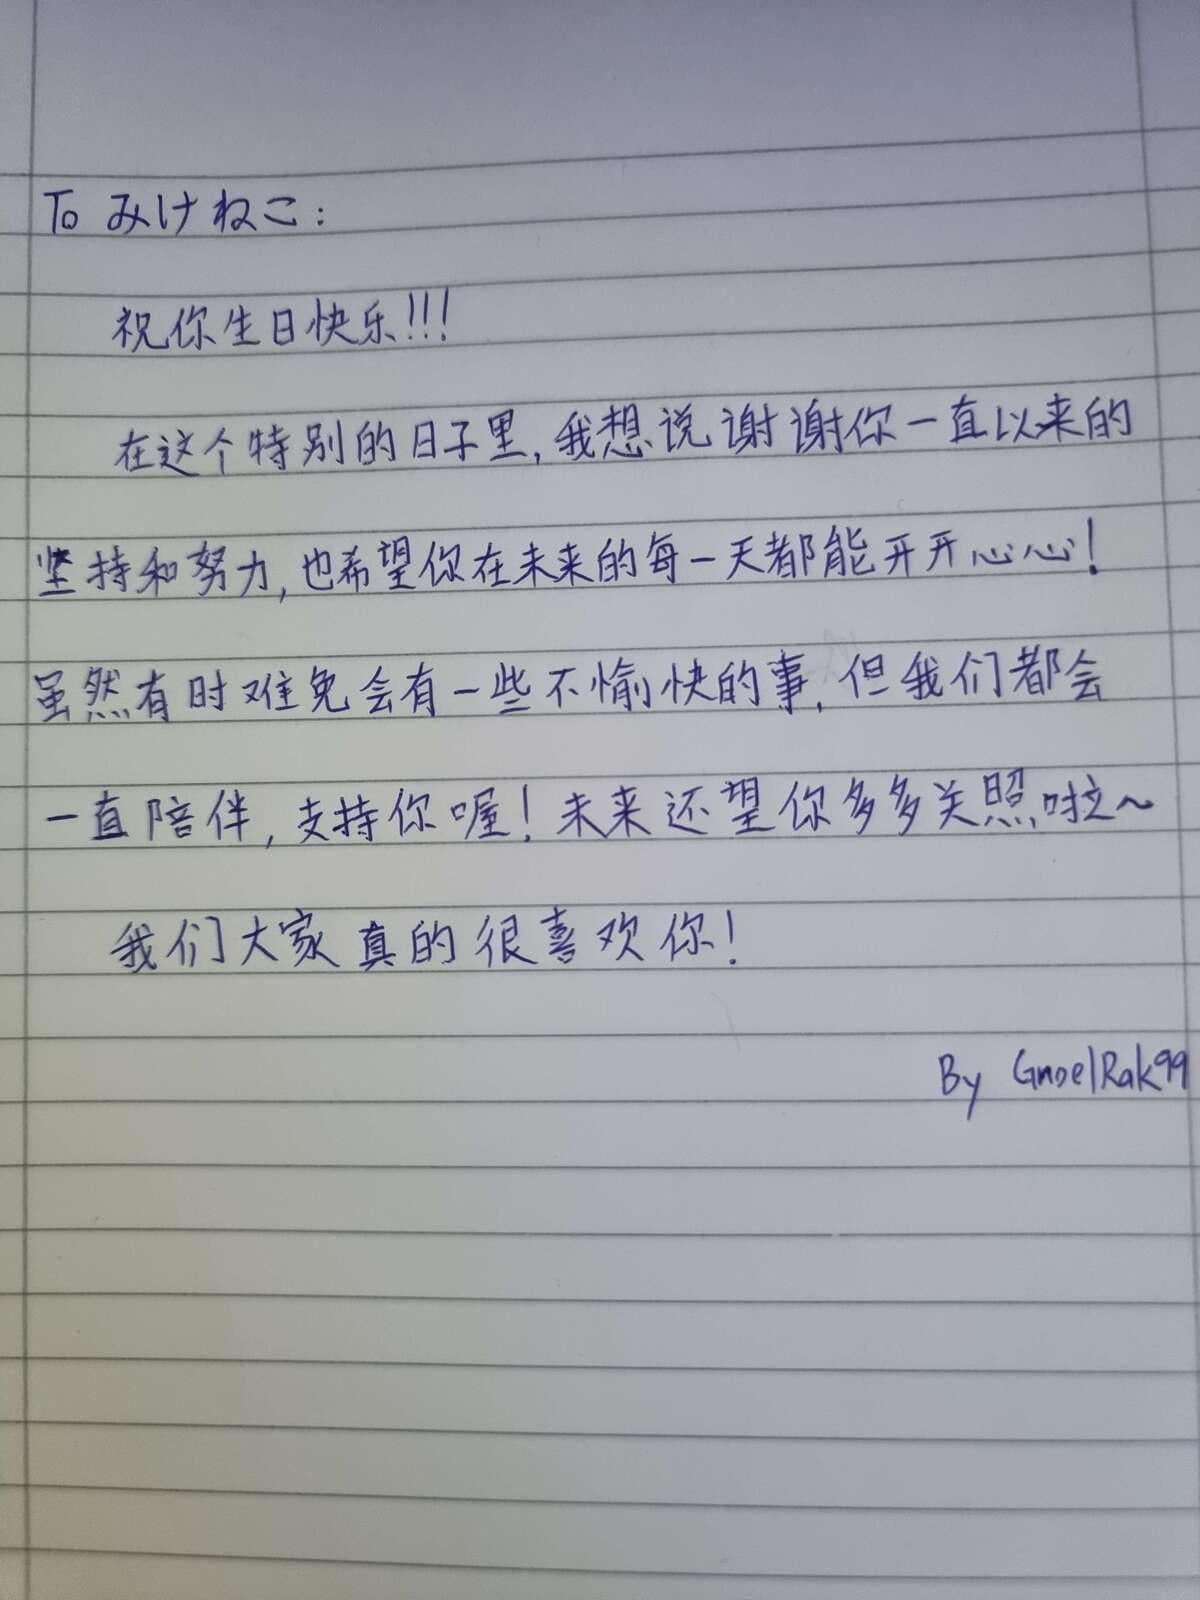 To みけねこ:
祝你生日快乐!!!
在这个特别的日子里,我想说谢谢你一直以来的
坚持和努力,也希望你在未来的每一天都能开开心心!
虽然有时难免会有一些不愉快的事,但我们都会
一直陪伴,支持你喔!未来还望你多多关照啦~
我们大家真的很喜欢你!
By GnoelRak99